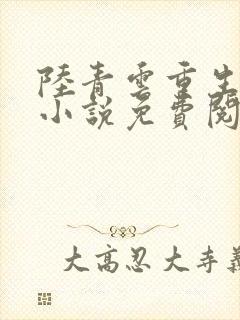 陸青雲重生
小說免費閱
大高忍大寺